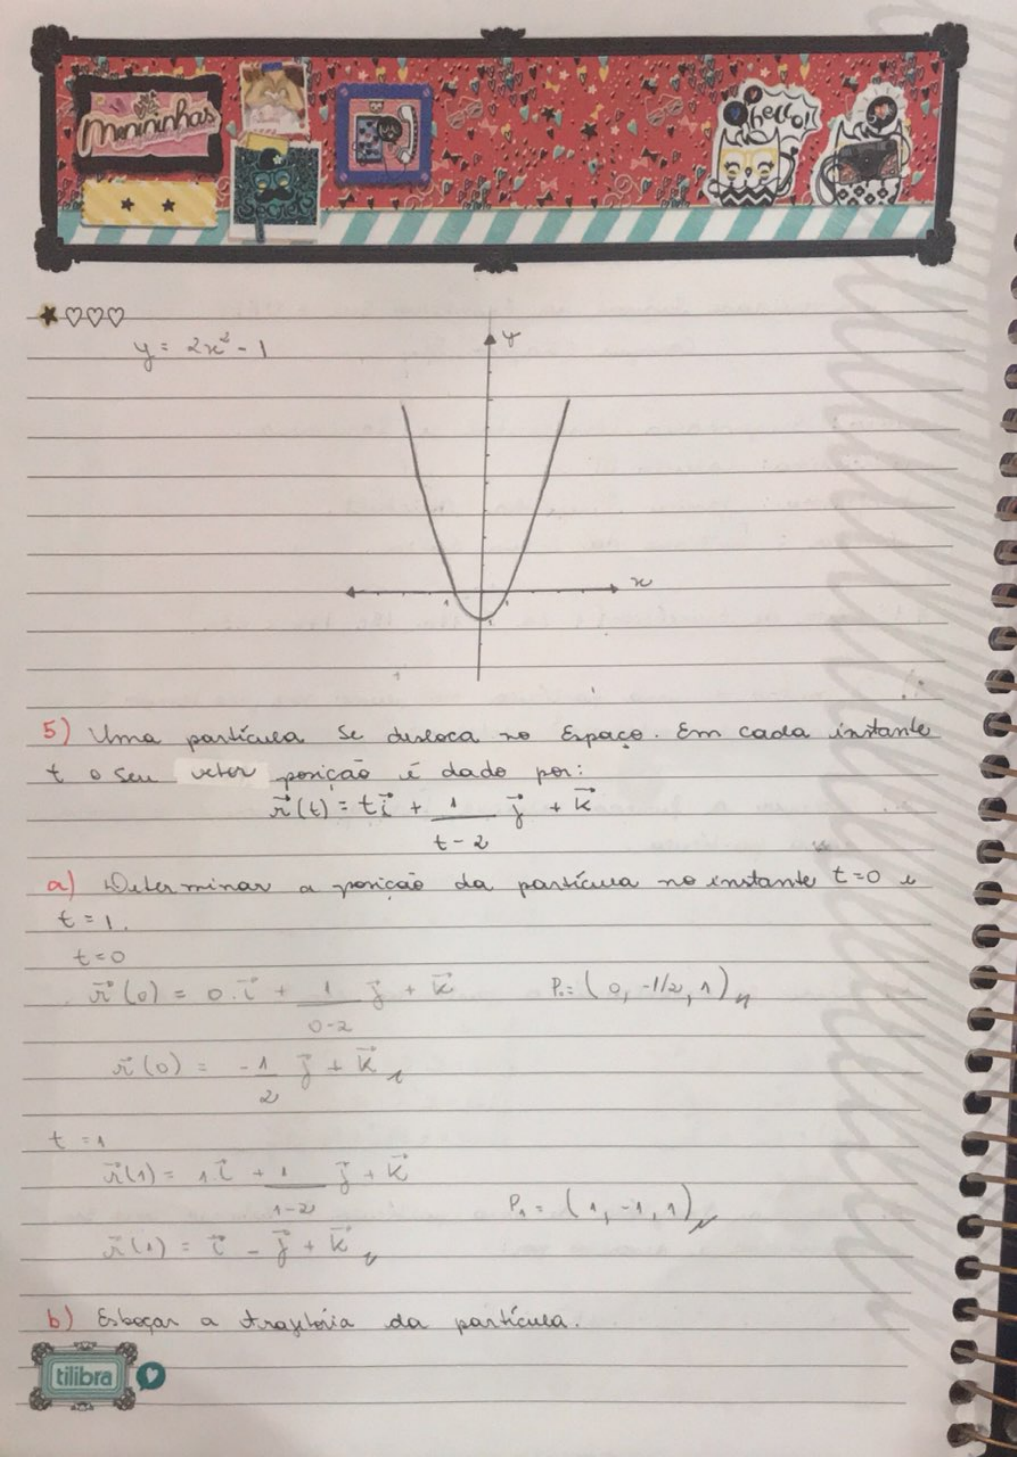 Menininhas
hello!
y = 2x² - 1
y
x
1
1
5) Uma partícula se desloca no Espaço. Em cada instante
t o seu vetor posição é dado por:
r⃗(t) = t i⃗ + 1/(t-2) j⃗ + k⃗
a) Determinar a posição da partícula no instante t=0 e
t = 1.
t=0
r⃗(0) = 0.i⃗ + 1/(0-2) j⃗ + k⃗ P₀= (0, -1/2, 1)
r⃗(0) = -1/2 j⃗ + k⃗
t = 1
r⃗(1) = 1.i⃗ + 1/(1-2) j⃗ + k⃗
P₁ = (1, -1, 1)
r⃗(1) = i⃗ - j⃗ + k⃗
b) Esboçar a trajetória da partícula.
tilibra